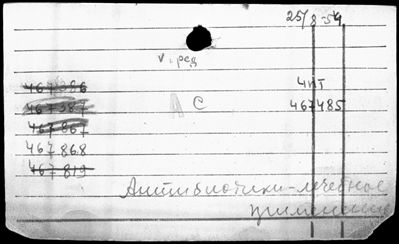 25/8-54
v. ред
467386
467387
467867
467868
467819
чит
467485
с
Антибиотики-лечебное
применение